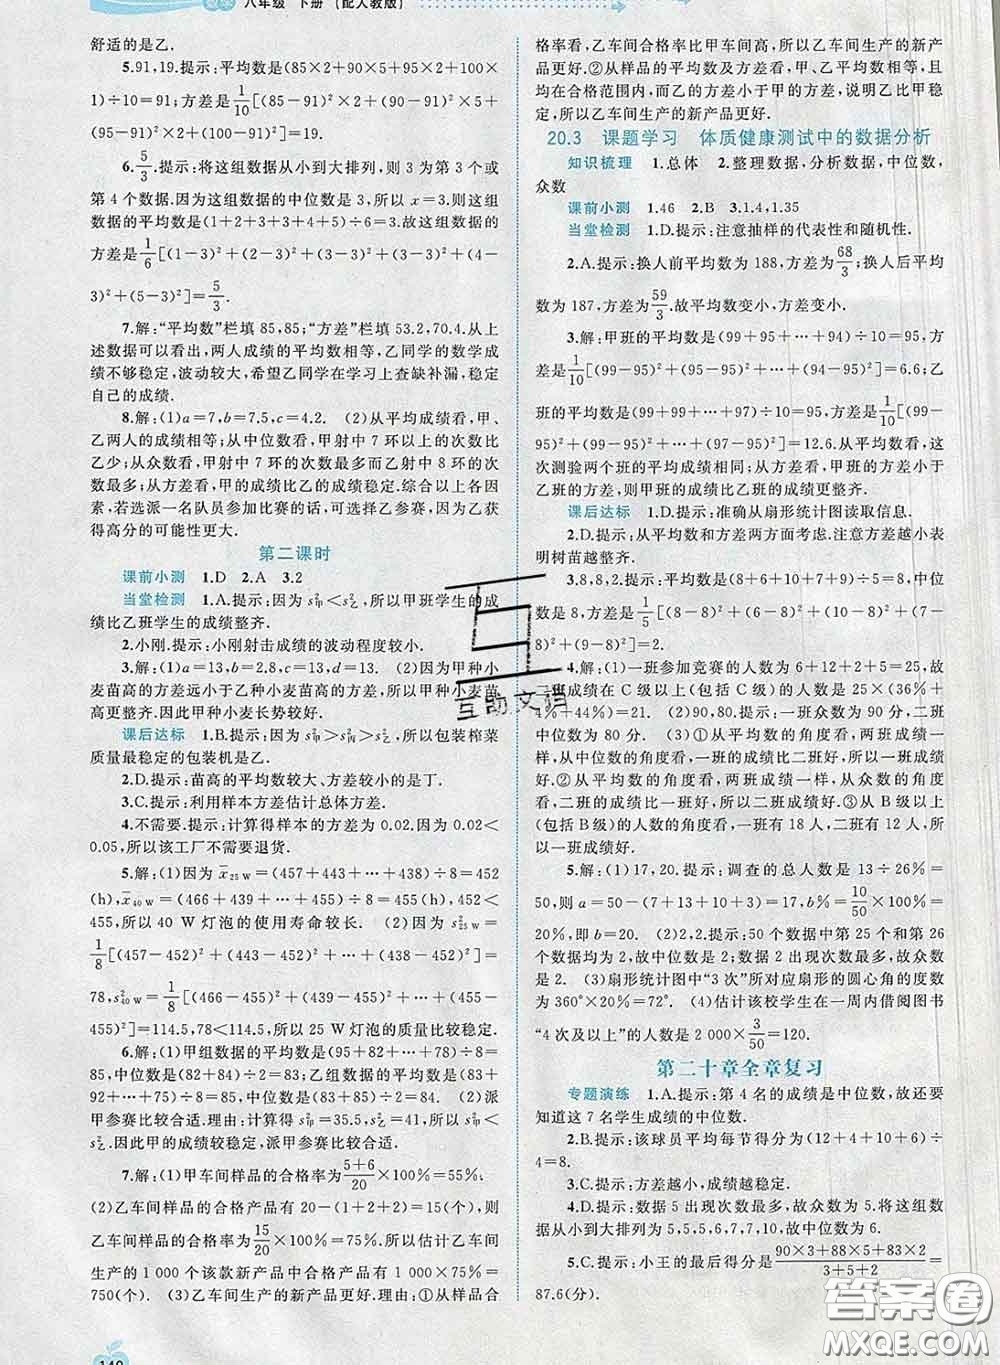 八年级 下册 (配人教版)
舒适的是乙.
5.91,19.提示:平均数是(85×2+90×5+95×2+100×
1)÷10=91;方差是1/10[(85-91)²×2+(90-91)²×5+
(95-91)²×2+(100-91)²×1]=19.
6.5/3.提示:将这组数据从小到大排列,则3为第3个数或
第4个数据.因为这组数据的中位数是3,所以x=3.则这组
数据的平均数为(1+2+3+3+4+5)÷6=3.故这组数据的
方差是1/6[(1-3)²+(2-3)²+(3-3)²+(3-3)²+(4-
3)²+(5-3)²]=5/3.
7.解:“平均数”栏填85,85;“方差”栏填53.2,70.4.从上
述数据可以看出,两人成绩的平均数相同,乙同学的数学成
绩不够稳定,波动较大,希望乙同学在学习上查缺补漏,稳定
自己的成绩.
8.解:(1)a=7,b=7.5,c=4.2. (2)从平均成绩看,甲、
乙两人的成绩相等;从中位数看,甲射中7环以上的次数比
乙少;从众数看,甲射中7环的次数最多而乙射中8环的次
数最多;从方差看,甲的成绩比乙的成绩稳定.综合以上各因
素,若选派一名队员参加比赛的话,可选择乙参赛,因为乙获
得高分的可能性更大.
第二课时
课前小测 1.D 2.A 3.2
当堂检测 1.A.提示:因为s²甲<s²乙,所以甲班学生的成
绩比乙班学生的成绩整齐.
2.小刚.提示:小刚射击成绩的波动程度较小.
3.解:(1)a=16,b=2.8,c=13,d=13. (2)因为甲种小
麦苗高的方差远小于乙种小麦苗高的方差,故甲种小麦苗
高更整齐.因此甲种小麦长势较好.
课后达标 1.B.提示:因为s²甲>s²丙>s²乙,所以包装榨菜
质量最稳定的包装机是乙.
2.D.提示:苗高的平均数较大、方差较小的是丁.
3.C.提示:利用样本方差估计总体方差.
4.不需要.提示:计算得样本的方差为0.02.因为0.02<
0.05,所以该工厂不需要退货.
5.解:(1)因为x̄25 W=(457+443+…+438)÷8=452
(h),x̄40 W=(466+439+…+455)÷8=455(h),452<
455,所以40 W灯泡的使用寿命较长. (2)因为s²25 W=
1/8[(457-452)²+(443-452)²+…+(438-452)²]=
78,s²40 W=1/8[(466-455)²+(439-455)²+…+(455-
455)²]=114.5,78<114.5,所以25 W灯泡的质量比较稳定.
6.解:(1)甲组数据的平均数是(95+82+…+78)÷8=
85,中位数是(82+84)÷2=83;乙组数据的平均数是(83+
92+…+75)÷8=85,中位数是(83+85)÷2=84. (2)派
甲参赛比较合适.理由:因为s²甲=35.5,s²乙=41,s²甲<s²乙,所
以甲的成绩较稳定,派甲参赛比较合适.
7.解:(1)甲车间样品的合格率为(5+6)/20×100%=55%;
(2)乙车间样品的合格产品有20-(1+2+2)=15(个),所以
乙车间样品的合格率为15/20×100%=75%.所以估计乙车间
生产的1 000个该款新产品中合格产品有1 000×75%=
750(个). (3)乙车间生产的新产品更好.理由:①从样品合
格率看,乙车间合格率比甲车间高,所以乙车间生产的新产
品更好.②从样品的平均数及方差看,甲、乙平均数相等,且
均在合格范围内,而乙的方差小于甲的方差,说明乙比甲稳
定,所以乙车间生产的新产品更好.
20.3 课题学习 体质健康测试中的数据分析
知识梳理 1.总体 2.整理数据,分析数据,中位数,
众数
课前小测 1.46 2.B 3.1.4,1.35
当堂检测 1.D.提示:注意抽样的代表性和随机性.
2.A.提示:换人前平均数为188,方差为68/3;换人后平均
数为187,方差为59/3.故平均数变小,方差变小.
3.解:甲班的平均数是(99+95+…+94)÷10=95,方
差是1/10[(99-95)²+(95-95)²+…+(94-95)²]=6.6;乙
班的平均数是(99+99+…+97)÷10=95,方差是1/10[(99-
95)²+(99-95)²+…+(97-95)²]=12.6.从平均数看,这
次测验两个班的平均成绩相同;从方差看,甲班的方差小于
乙班的方差,则甲班的成绩比乙班的成绩更整齐.
课后达标 1.D.提示:准确从扇形统计图读取信息.
2.D.提示:从平均数和方差两方面考虑.注意方差越小表
明树苗越整齐.
3.8,8,2.提示:平均数是(8+6+10+7+9)÷5=8,中位
数是8,方差是1/5[(8-8)²+(6-8)²+(10-8)²+(7-
8)²+(9-8)²]=2.
4.解:(1)一班参加竞赛的人数为6+12+2+5=25,故
二班成绩在C级以上(包括C级)的人数是25×(36%+
4%+44%)=21. (2)90,80.提示:一班众数为90分,二班
中位数为80分. (3)①从平均数的角度看,两班成绩一样,
从中位数的角度看,一班成绩比二班好,所以一班成绩好.②
从平均数的角度看,两班成绩一样,从众数的角度
看,二班的成绩比一班好,所以二班成绩好.③从B级以上
(包括B级)的人数的角度看,一班有18人,二班有12人,所
以一班成绩好.
5.解:(1)17,20.提示:调查的总人数是13÷26%=
50,则a=50-(7+13+10+3)=17,b%=10/50×100%=
20%,即b=20. (2)2,2.提示:50个数据中第25个和第26
个数据均为2,故中位数是2;数据2出现次数最多,故众数
是2. (3)扇形统计图中“3次”所对应扇形的圆心角的度数
为360°×20%=72°. (4)估计该校学生在一周内借阅图书
“4次及以上”的人数是2 000×3/50=120.
第二十章全章复习
专题演练 1.A.提示:第4名的成绩是中位数,故还要
知道这7名学生成绩的中位数.
2.B.提示:该球员平均每节得分为(12+4+10+6)÷
4=8.
3.C.提示:方差越小,成绩越稳定.
4.D.提示:数据5出现次数最多,故众数为5.将这组数据
从小到大排列为5,5,5,6,7,7,10,故中位数为6.
5.C.提示:小王的最后得分是(90×3+88×5+83×2)/(3+5+2)=
87.6(分).
互助文档
答案圈
MXQE.COM
140